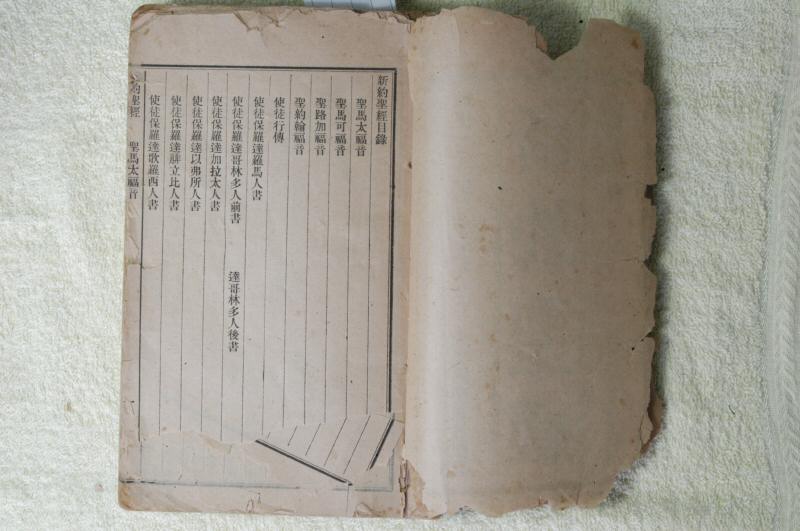 新約聖經目錄
聖馬太福音
聖馬可福音
聖路加福音
聖約翰福音
使徒行傳
使徒保羅達羅馬人書
使徒保羅達哥林多人前書 達哥林多人後書
使徒保羅達加拉太人書
使徒保羅達以弗所人書
使徒保羅達腓立比人書
使徒保羅達歌羅西人書
約聖經 聖馬太福音